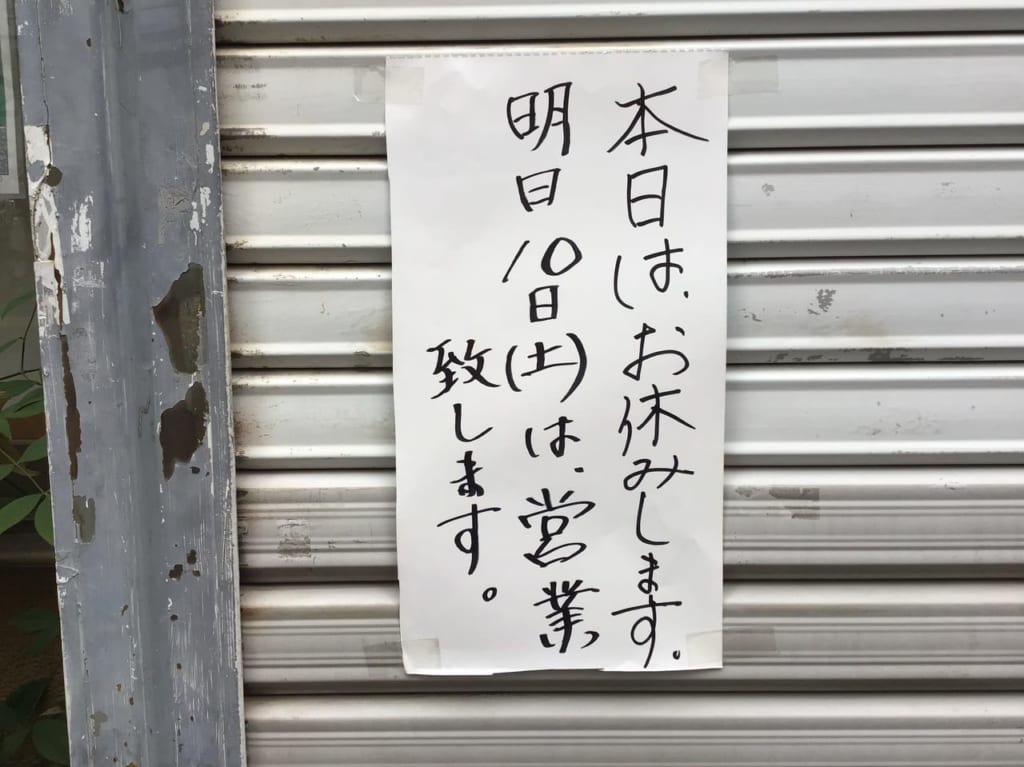 本日は、お休みします。
明日10日(土)は、営業
致します。